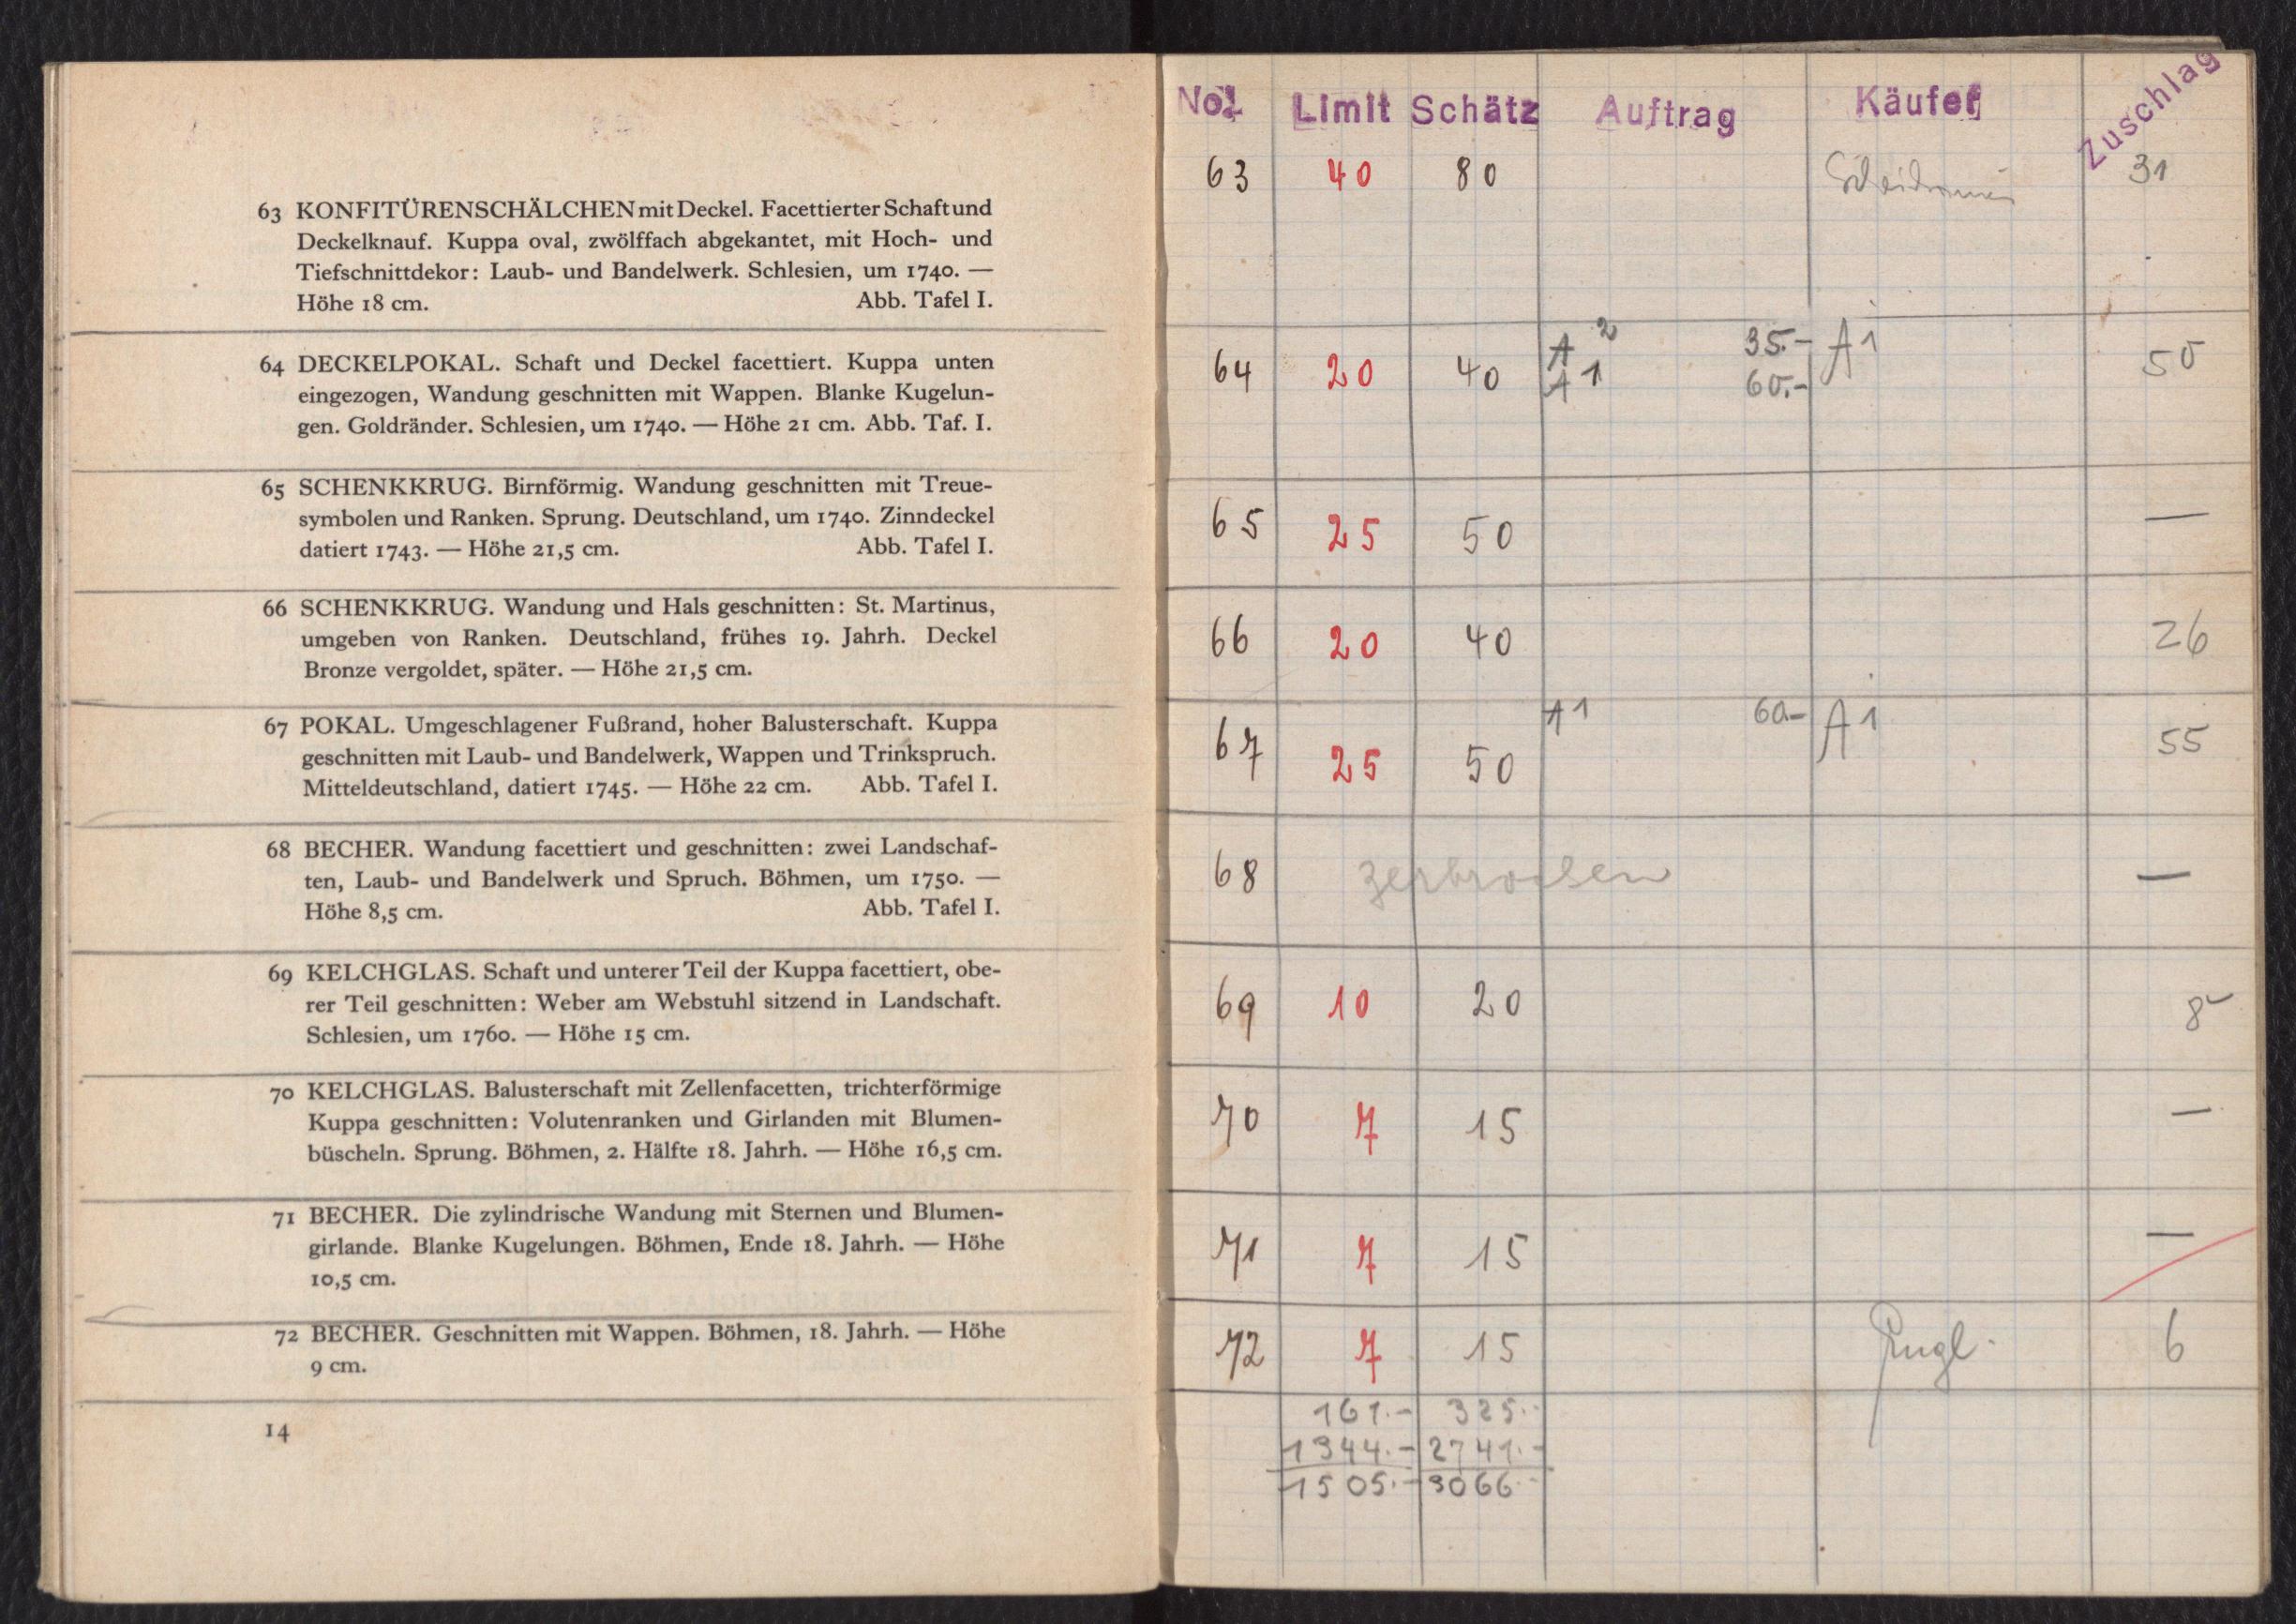 63 KONFITÜRENSCHÄLCHEN mit Deckel. Facettierter Schaft und
Deckelknauf. Kuppa oval, zwölffach abgekantet, mit Hoch- und
Tiefschnittdekor: Laub- und Bandelwerk. Schlesien, um 1740. —
Höhe 18 cm. Abb. Tafel I.
64 DECKELPOKAL. Schaft und Deckel facettiert. Kuppa unten
eingezogen, Wandung geschnitten mit Wappen. Blanke Kugelun-
gen. Goldränder. Schlesien, um 1740. — Höhe 21 cm. Abb. Taf. I.
65 SCHENKKRUG. Birnförmig. Wandung geschnitten mit Treue-
symbolen und Ranken. Sprung. Deutschland, um 1740. Zinndeckel
datiert 1743. — Höhe 21,5 cm. Abb. Tafel I.
66 SCHENKKRUG. Wandung und Hals geschnitten: St. Martinus,
umgeben von Ranken. Deutschland, frühes 19. Jahrh. Deckel
Bronze vergoldet, später. — Höhe 21,5 cm.
67 POKAL. Umgeschlagener Fußrand, hoher Balusterschaft. Kuppa
geschnitten mit Laub- und Bandelwerk, Wappen und Trinkspruch.
Mitteldeutschland, datiert 1745. — Höhe 22 cm. Abb. Tafel I.
68 BECHER. Wandung facettiert und geschnitten: zwei Landschaf-
ten, Laub- und Bandelwerk und Spruch. Böhmen, um 1750. —
Höhe 8,5 cm. Abb. Tafel I.
69 KELCHGLAS. Schaft und unterer Teil der Kuppa facettiert, obe-
rer Teil geschnitten: Weber am Webstuhl sitzend in Landschaft.
Schlesien, um 1760. — Höhe 15 cm.
70 KELCHGLAS. Balusterschaft mit Zellenfacetten, trichterförmige
Kuppa geschnitten: Volutenranken und Girlanden mit Blumen-
büscheln. Sprung. Böhmen, 2. Hälfte 18. Jahrh. — Höhe 16,5 cm.
71 BECHER. Die zylindrische Wandung mit Sternen und Blumen-
girlande. Blanke Kugelungen. Böhmen, Ende 18. Jahrh. — Höhe
10,5 cm.
72 BECHER. Geschnitten mit Wappen. Böhmen, 18. Jahrh. — Höhe
9 cm.
14
No. Limit Schätz Auftrag Käufer Zuschlag
63 40 80 31
64 20 40 A 2 35.- A 1 50
A 1 60.-
65 25 50 —
66 20 40 26
67 25 50 A 1 60.- A 1 55
68 zerbrochen —
69 10 20 8
70 7 15 —
71 7 15 —
72 7 15 6
161.- 325.-
1344.- 2741.-
1505.- 3066.-